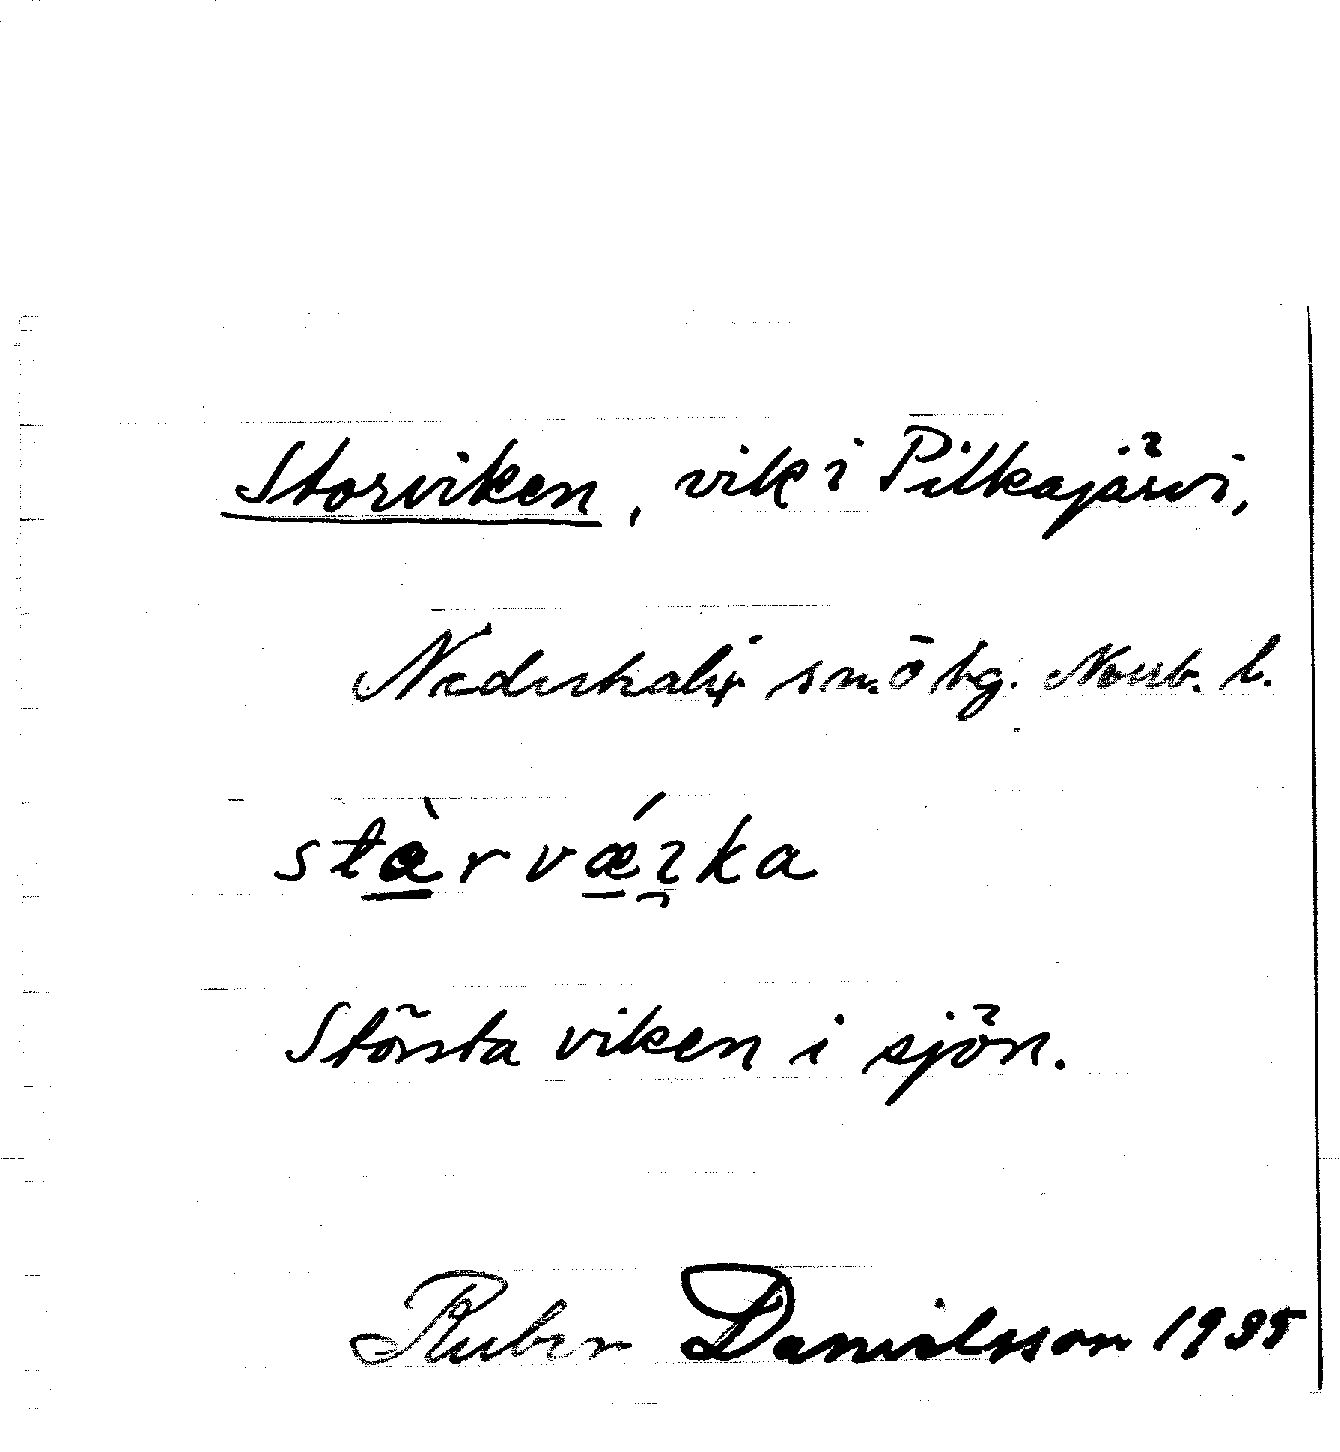 Storviken, vik i Pilkajärvi,
Nederkalix sn. Ö bg. Norrb. l.
stàrvǽɪka
Största viken i sjön.
Ruben Danielsson 1935